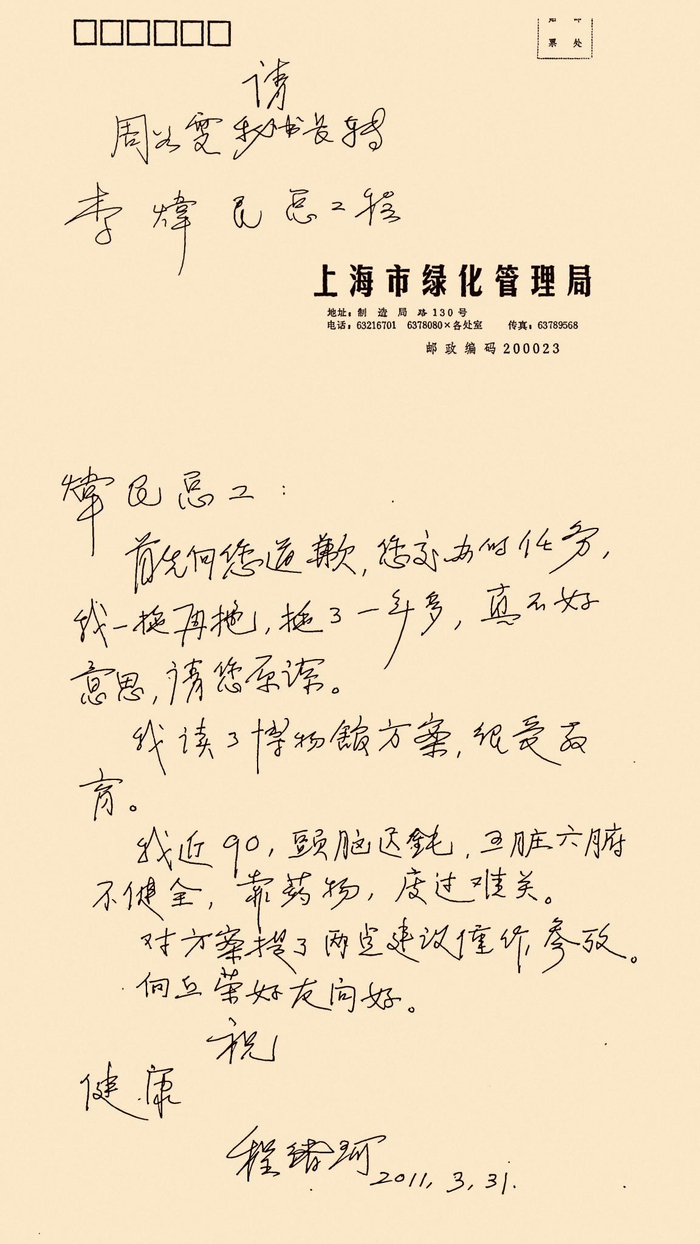 贴 邮
票 处
请
周 雯秘书长转
李 炜 民 总 工 程
上海市绿化管理局
地址：制 造 局 路 130 号
电话：63216701 6378080×各处室 传真：63789568
邮 政 编 码 200023
炜 民 总 工：
首先向您道歉，您交办的任务，
我一拖再拖，拖了一年多，真不好
意思，请您原谅。
我 读 了 博物馆方案，很受教
育。
我近 90，頭脑迟鈍，五脏六腑
不健全，靠药物，度过难关。
对方案提了两点建议僅供参考。
向 荣好友问好。
祝
健 康
程绪珂
2011. 3. 31.